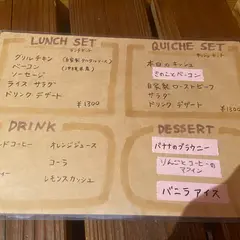 LUNCH SET
ランチセット
グリルチキン
ベーコン
ソーセージ
ライス サラダ
ドリンク デザート
¥1300
QUICHE SET
キッシュセット
本日のキッシュ
きのことベーコン
自家製ローストビーフ
サラダ
ドリンク デザート
DRINK
オレンジジュース
コーラ
レモンスカッシュ
DESSERT
バナナのブラウニー
りんごとコーヒーの
マフィン
バニラアイス